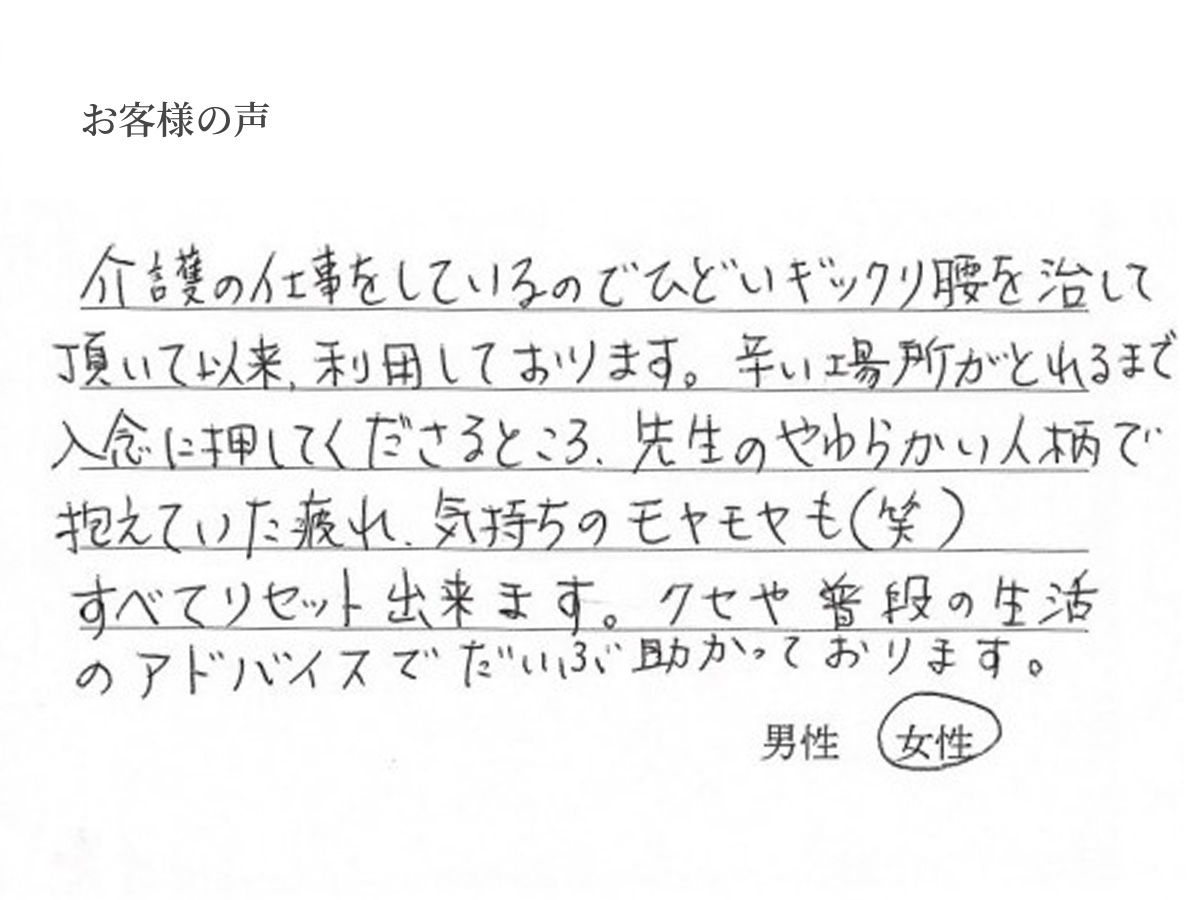 お客様の声
介護の仕事をしているのでひどいギックリ腰を治して
頂いて以来、利用しております。辛い場所がとれるまで
入念に押してくださるところ、先生のやわらかい人柄で
抱えていた疲れ、気持ちのモヤモヤも(笑)
すべてリセット出来ます。クセや普段の生活
のアドバイスでだいぶ助かっております。
男性 女性